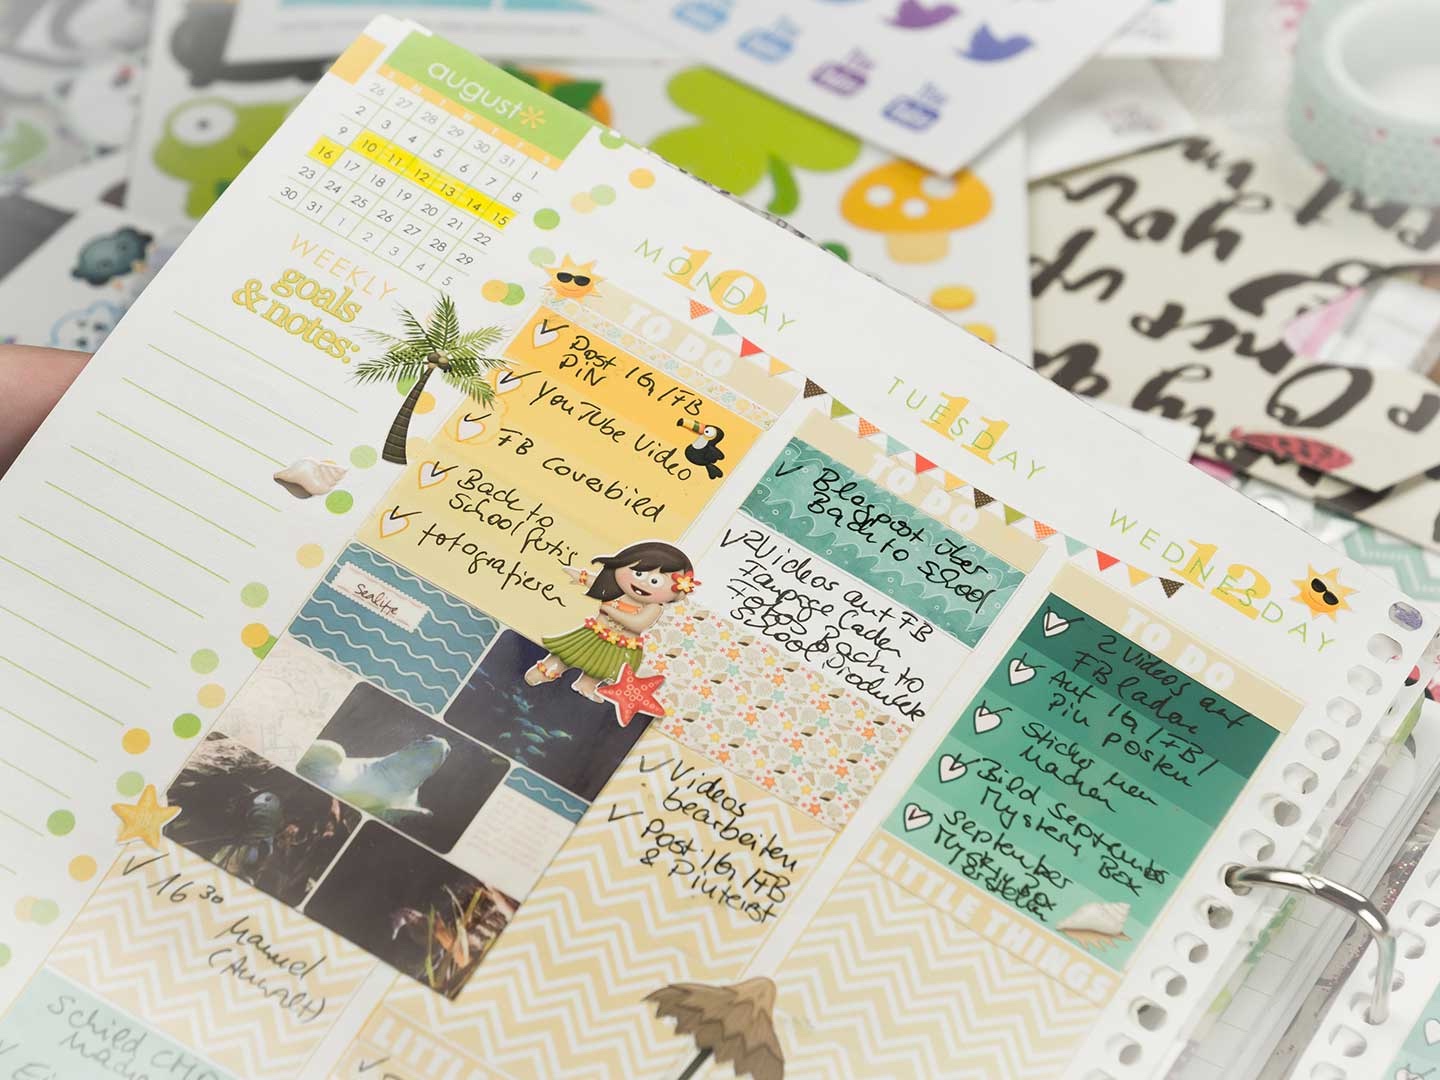 august*
S M T W T F S
26 27 28 29 30 31 1
2 3 4 5 6 7 8
9 10 11 12 13 14 15
16 17 18 19 20 21 22
23 24 25 26 27 28 29
30 31 1 2 3 4 5
WEEKLY
goals
& notes:
10
MONDAY
TO DO
Post IG/FB
PiN
YouTube Video
FB Coverbild
Back to
School
fotografieren
Sealife
16 30
Manuel
(Anwalt)
Schild
11
TUESDAY
TO DO
Blogpost über
Back to School
2 Videos auf FB
Fanpage laden
Fotos Back to
School Produkte
Videos
bearbeiten
Post IG/FB
& Pinterest
LITTLE
12
WEDNESDAY
TO DO
2 Videos auf
FB laden
Auf IG/FB/
Pin posten
Sticker
Machen
Bild September
Mystery Box
September
Mystery Box
LITTLE THINGS
You
You
You